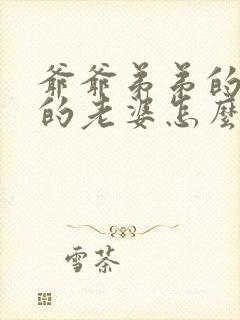 爷爷弟弟的
的老婆怎麼
雪茶